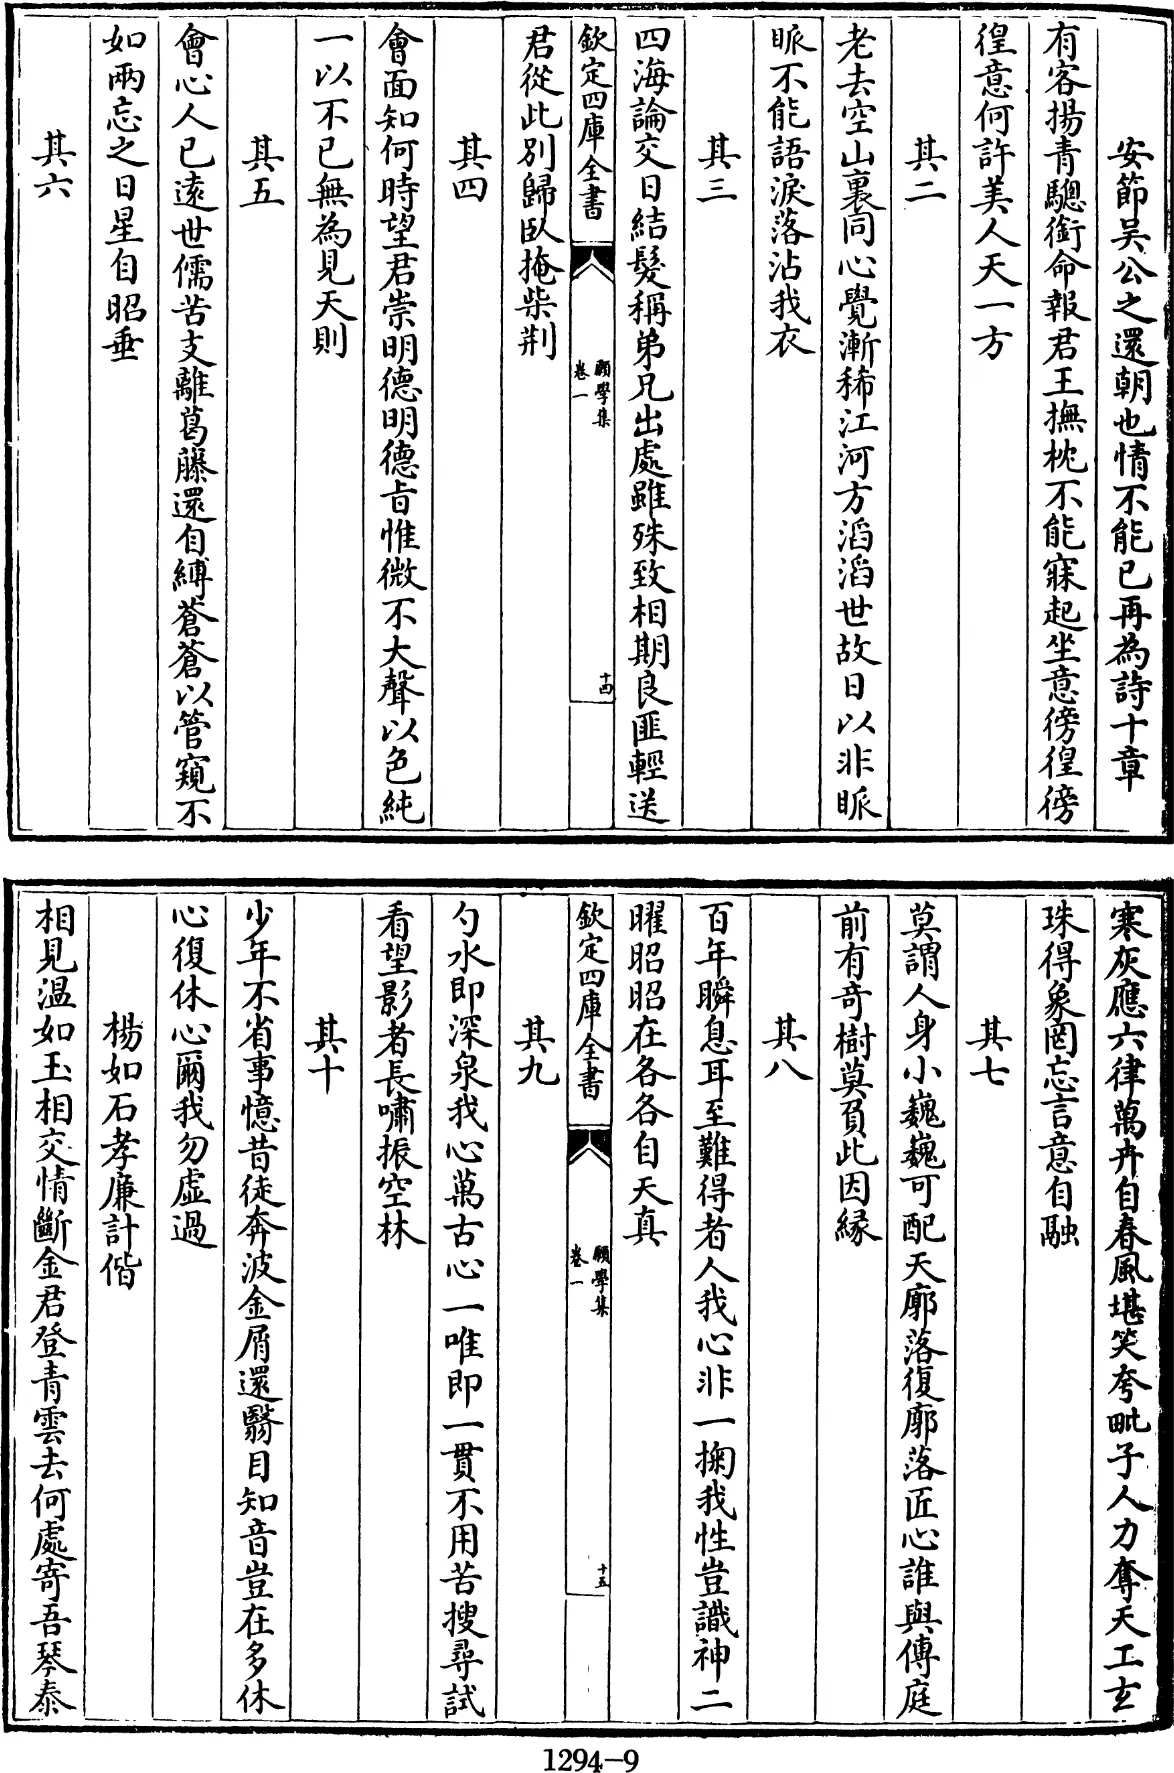 安節吴公之還朝也情不能已再為詩十章
有客揚青驄銜命報君王撫枕不能寐起坐意徬徨徬
徨意何許美人天一方
其二
老去空山裏同心覺漸稀江河方滔滔世故日以非眽
眽不能語淚落沾我衣
其三
四海論交日結髮稱弟兄出處雖殊致相期良匪輕送
欽定四庫全書
願學集
卷一
十四
君從此別歸臥掩柴荆
其四
會面知何時望君崇明德明德旨惟微不大聲以色純
一以不已無為見天則
其五
會心人已逺世儒苦支離葛藤還自縛蒼蒼以管窺不
如兩忘之日星自昭垂
其六
寒灰應六律萬卉自春風堪笑夸毗子人力奪天工玄
珠得象罔忘言意自融
其七
莫謂人身小巍巍可配天廓落復廓落匠心誰與傳庭
前有奇樹莫負此因縁
其八
百年瞬息耳至難得者人我心非一掬我性豈識神二
曜昭昭在各各自天真
欽定四庫全書
願學集
卷一
十五
其九
勺水即深泉我心萬古心一唯即一貫不用苦搜尋試
看望影者長嘯振空林
其十
少年不省事憶昔徒奔波金屑還翳目知音豈在多休
心復休心爾我勿虛過
楊如石孝廉計偕
相見温如玉相交情斷金君登青雲去何處寄吾琴泰
1294-9